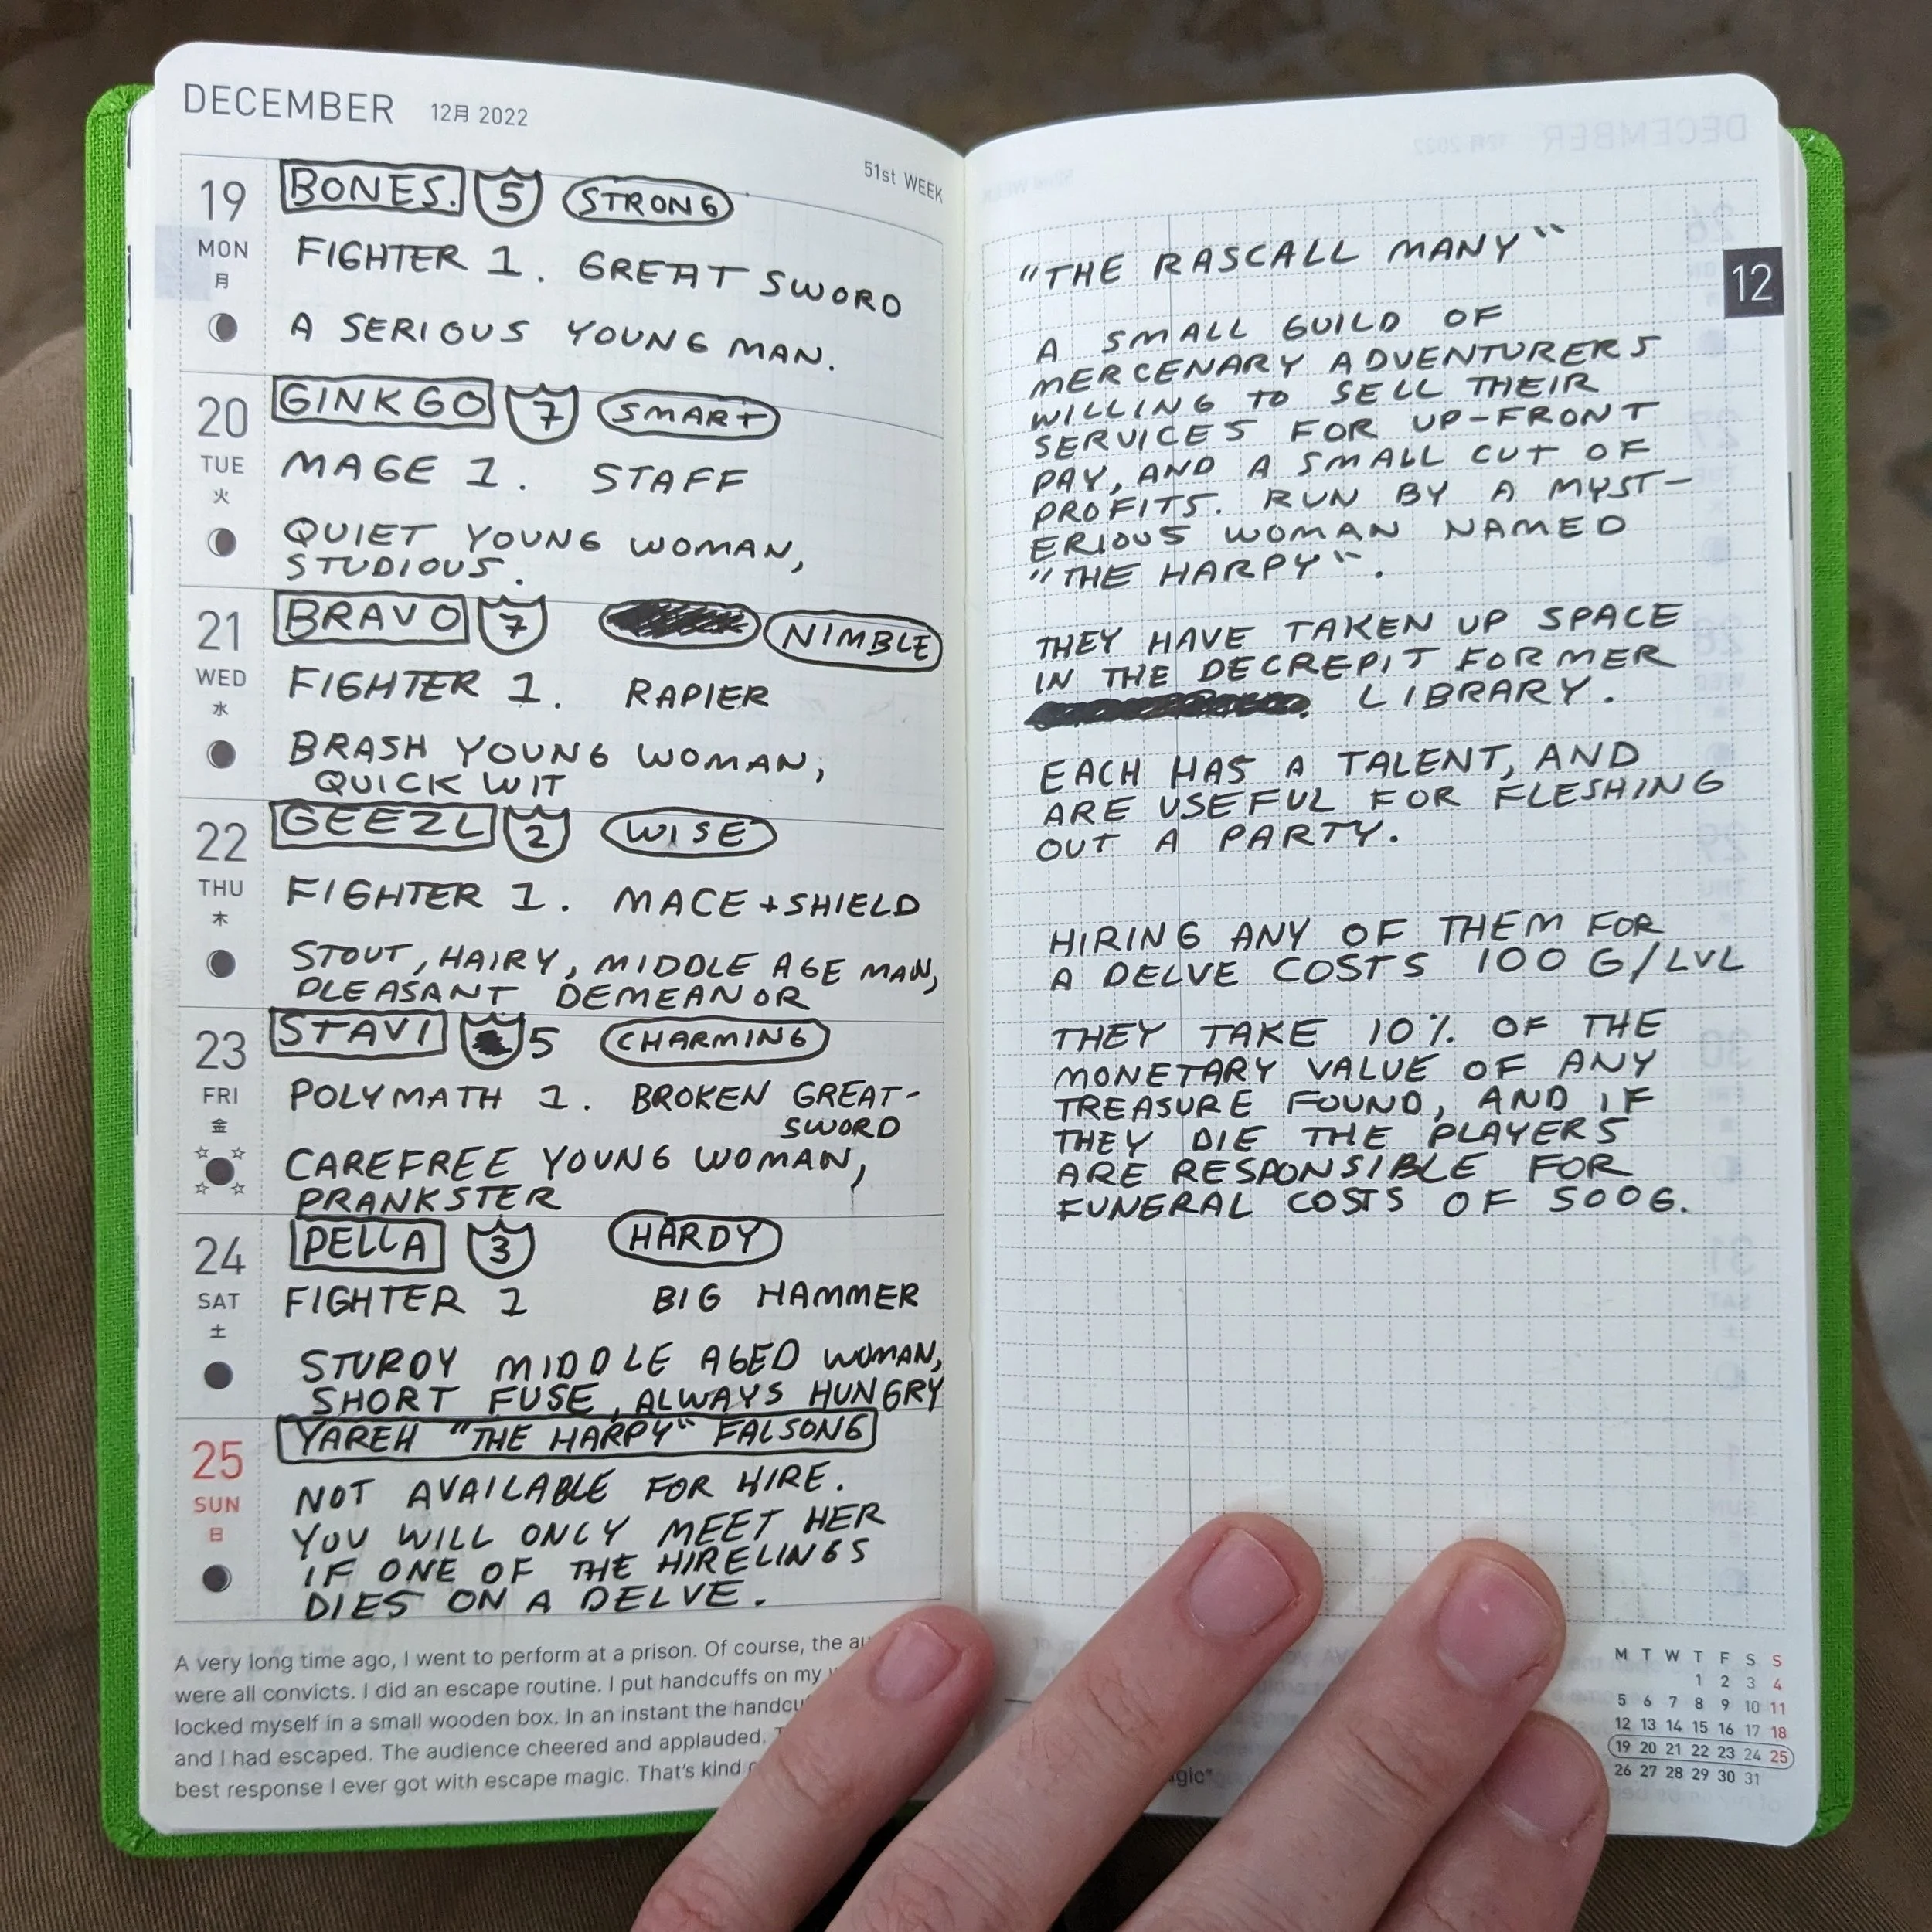 DECEMBER 12月 2022
51st WEEK
19
MON
月
BONES. 5 STRONG
FIGHTER 1. GREAT SWORD
A SERIOUS YOUNG MAN.
20
TUE
火
GINKGO 7 SMART
MAGE 1. STAFF
QUIET YOUNG WOMAN,
STUDIOUS.
21
WED
水
BRAVO 7 NIMBLE
FIGHTER 1. RAPIER
BRASH YOUNG WOMAN,
QUICK WIT
22
THU
木
GEEZL 2 WISE
FIGHTER 1. MACE + SHIELD
STOUT, HAIRY, MIDDLE AGE MAN,
PLEASANT DEMEANOR
23
FRI
金
STAVI 5 CHARMING
POLYMATH 1. BROKEN GREAT-
SWORD
CAREFREE YOUNG WOMAN,
PRANKSTER
24
SAT
土
PELLA 3 HARDY
FIGHTER 1 BIG HAMMER
STURDY MIDDLE AGED WOMAN,
SHORT FUSE, ALWAYS HUNGRY
25
SUN
日
YAREH "THE HARPY" FALSONG
NOT AVAILABLE FOR HIRE.
YOU WILL ONLY MEET HER
IF ONE OF THE HIRELINGS
DIES ON A DELVE.
A very long time ago, I went to perform at a prison. Of course, the
were all convicts. I did an escape routine. I put handcuffs on my
locked myself in a small wooden box. In an instant the
and I had escaped. The audience cheered and applauded.
best response I ever got with escape magic. That's kind
12
"THE RASCALL MANY"
A SMALL GUILD OF
MERCENARY ADVENTURERS
WILLING TO SELL THEIR
SERVICES FOR UP-FRONT
PAY, AND A SMALL CUT OF
PROFITS. RUN BY A MYST-
ERIOUS WOMAN NAMED
"THE HARPY".
THEY HAVE TAKEN UP SPACE
IN THE DECREPIT FORMER
LIBRARY.
EACH HAS A TALENT, AND
ARE USEFUL FOR FLESHING
OUT A PARTY.
HIRING ANY OF THEM FOR
A DELVE COSTS 100 G/LVL
THEY TAKE 10% OF THE
MONETARY VALUE OF ANY
TREASURE FOUND, AND IF
THEY DIE THE PLAYERS
ARE RESPONSIBLE FOR
FUNERAL COSTS OF 500G.
M T W T F S S
1 2 3 4
5 6 7 8 9 10 11
12 13 14 15 16 17 18
19 20 21 22 23 24 25
26 27 28 29 30 31